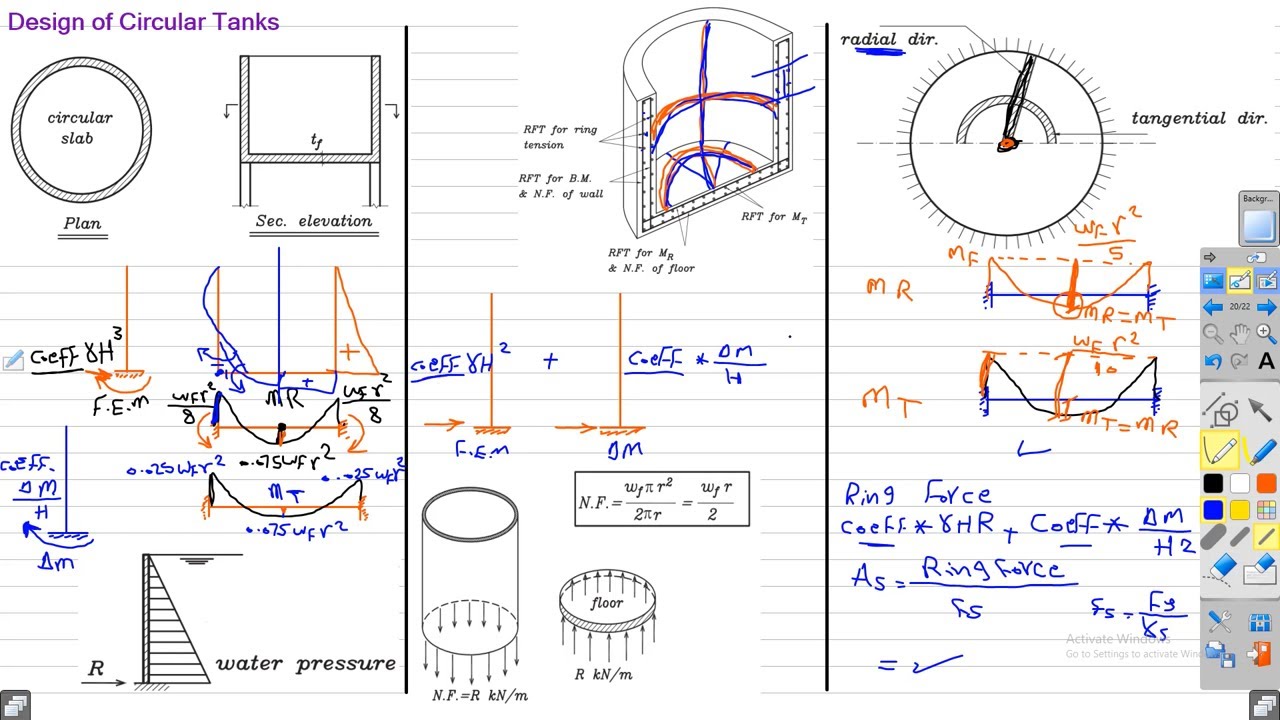 Design of Circular Tanks
circular
slab
Plan
t_f
Sec. elevation
coeff γH³
F.E.M
w_F r²/8
MR
w_F r²/8
0.075 w_F r²
0.025 w_F r²
0.025 w_F r²
MT
0.075 w_F r²
coeff. ΔM/H
ΔM
R
water pressure
RFT for ring
tension
RFT for B.M.
& N.F. of wall
RFT for M_T
RFT for M_R
& N.F. of floor
coeff γH² + coeff * ΔM/H
F.E.M
ΔM
N.F.= w_f π r²/2πr = w_f r/2
floor
R kN/m
N.F.=R kN/m
radial dir.
tangential dir.
w_F r²/5
MF
MR
MR=MT
w_F r²/10
MT
MT=MR
Ring Force
coeff * γHR + coeff * ΔM/H2
As = Ring Force/Fs
Fs = Fy/γs
=
Activate Windows
Go to Settings to activate Win
Backgr...
20/22
A